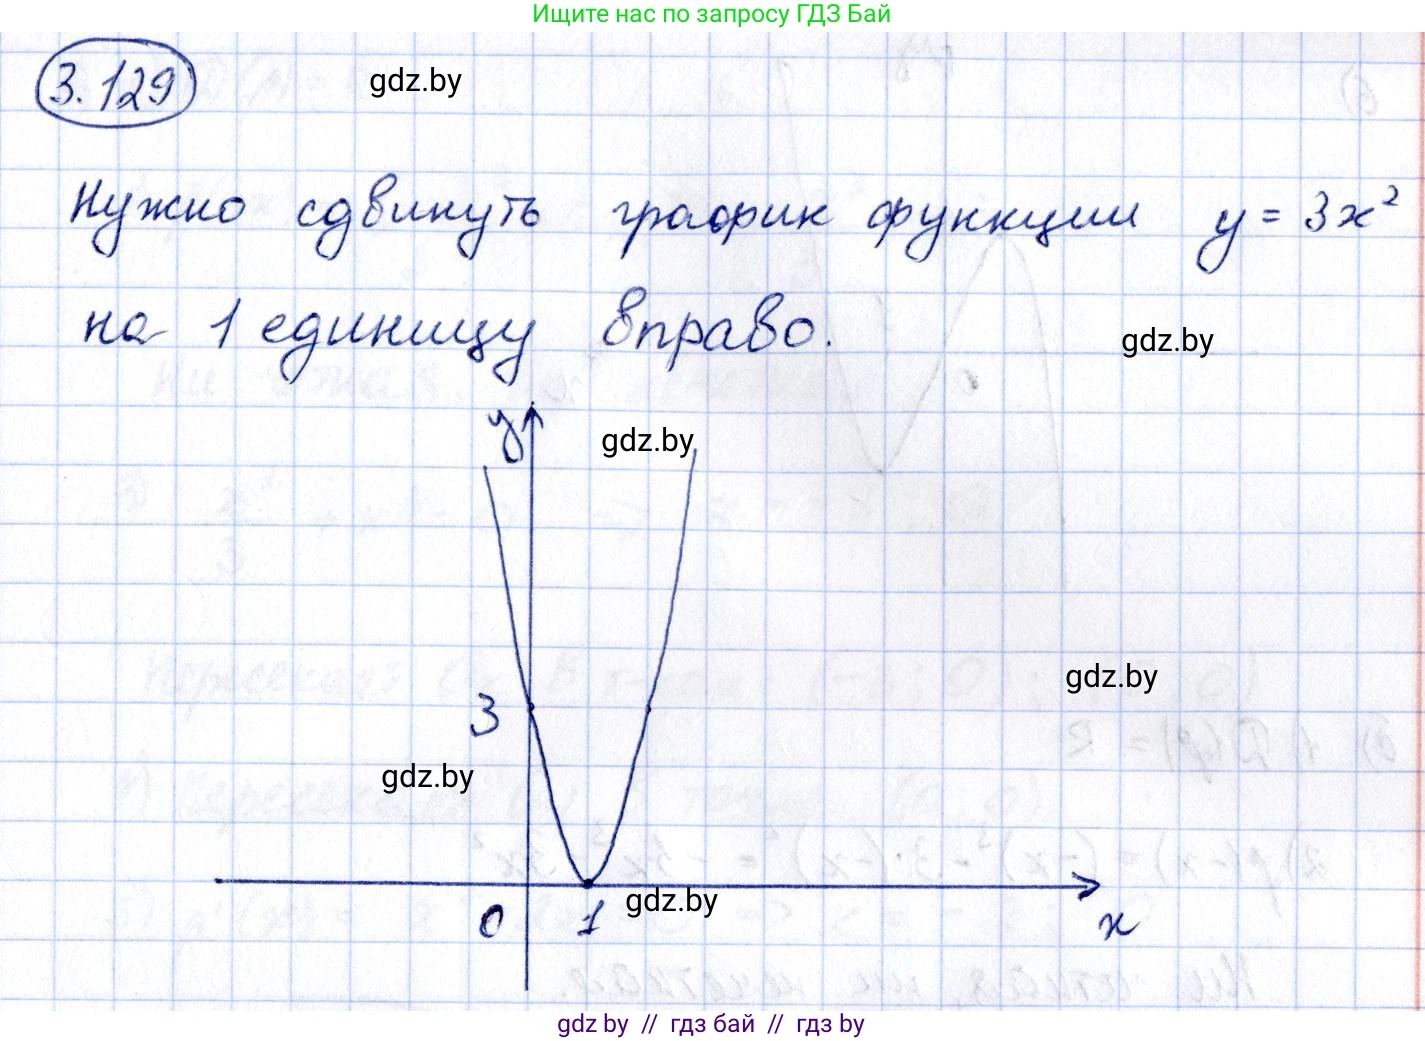 Ищите нас по запросу ГДЗ Бай
3.129
gdz.by
Нужно сдвинуть график функции y = 3x²
на 1 единицу вправо.
gdz.by
y
gdz.by
gdz.by
3
gdz.by
gdz.by
0 1 x
gdz by // гдз бай // гдз by